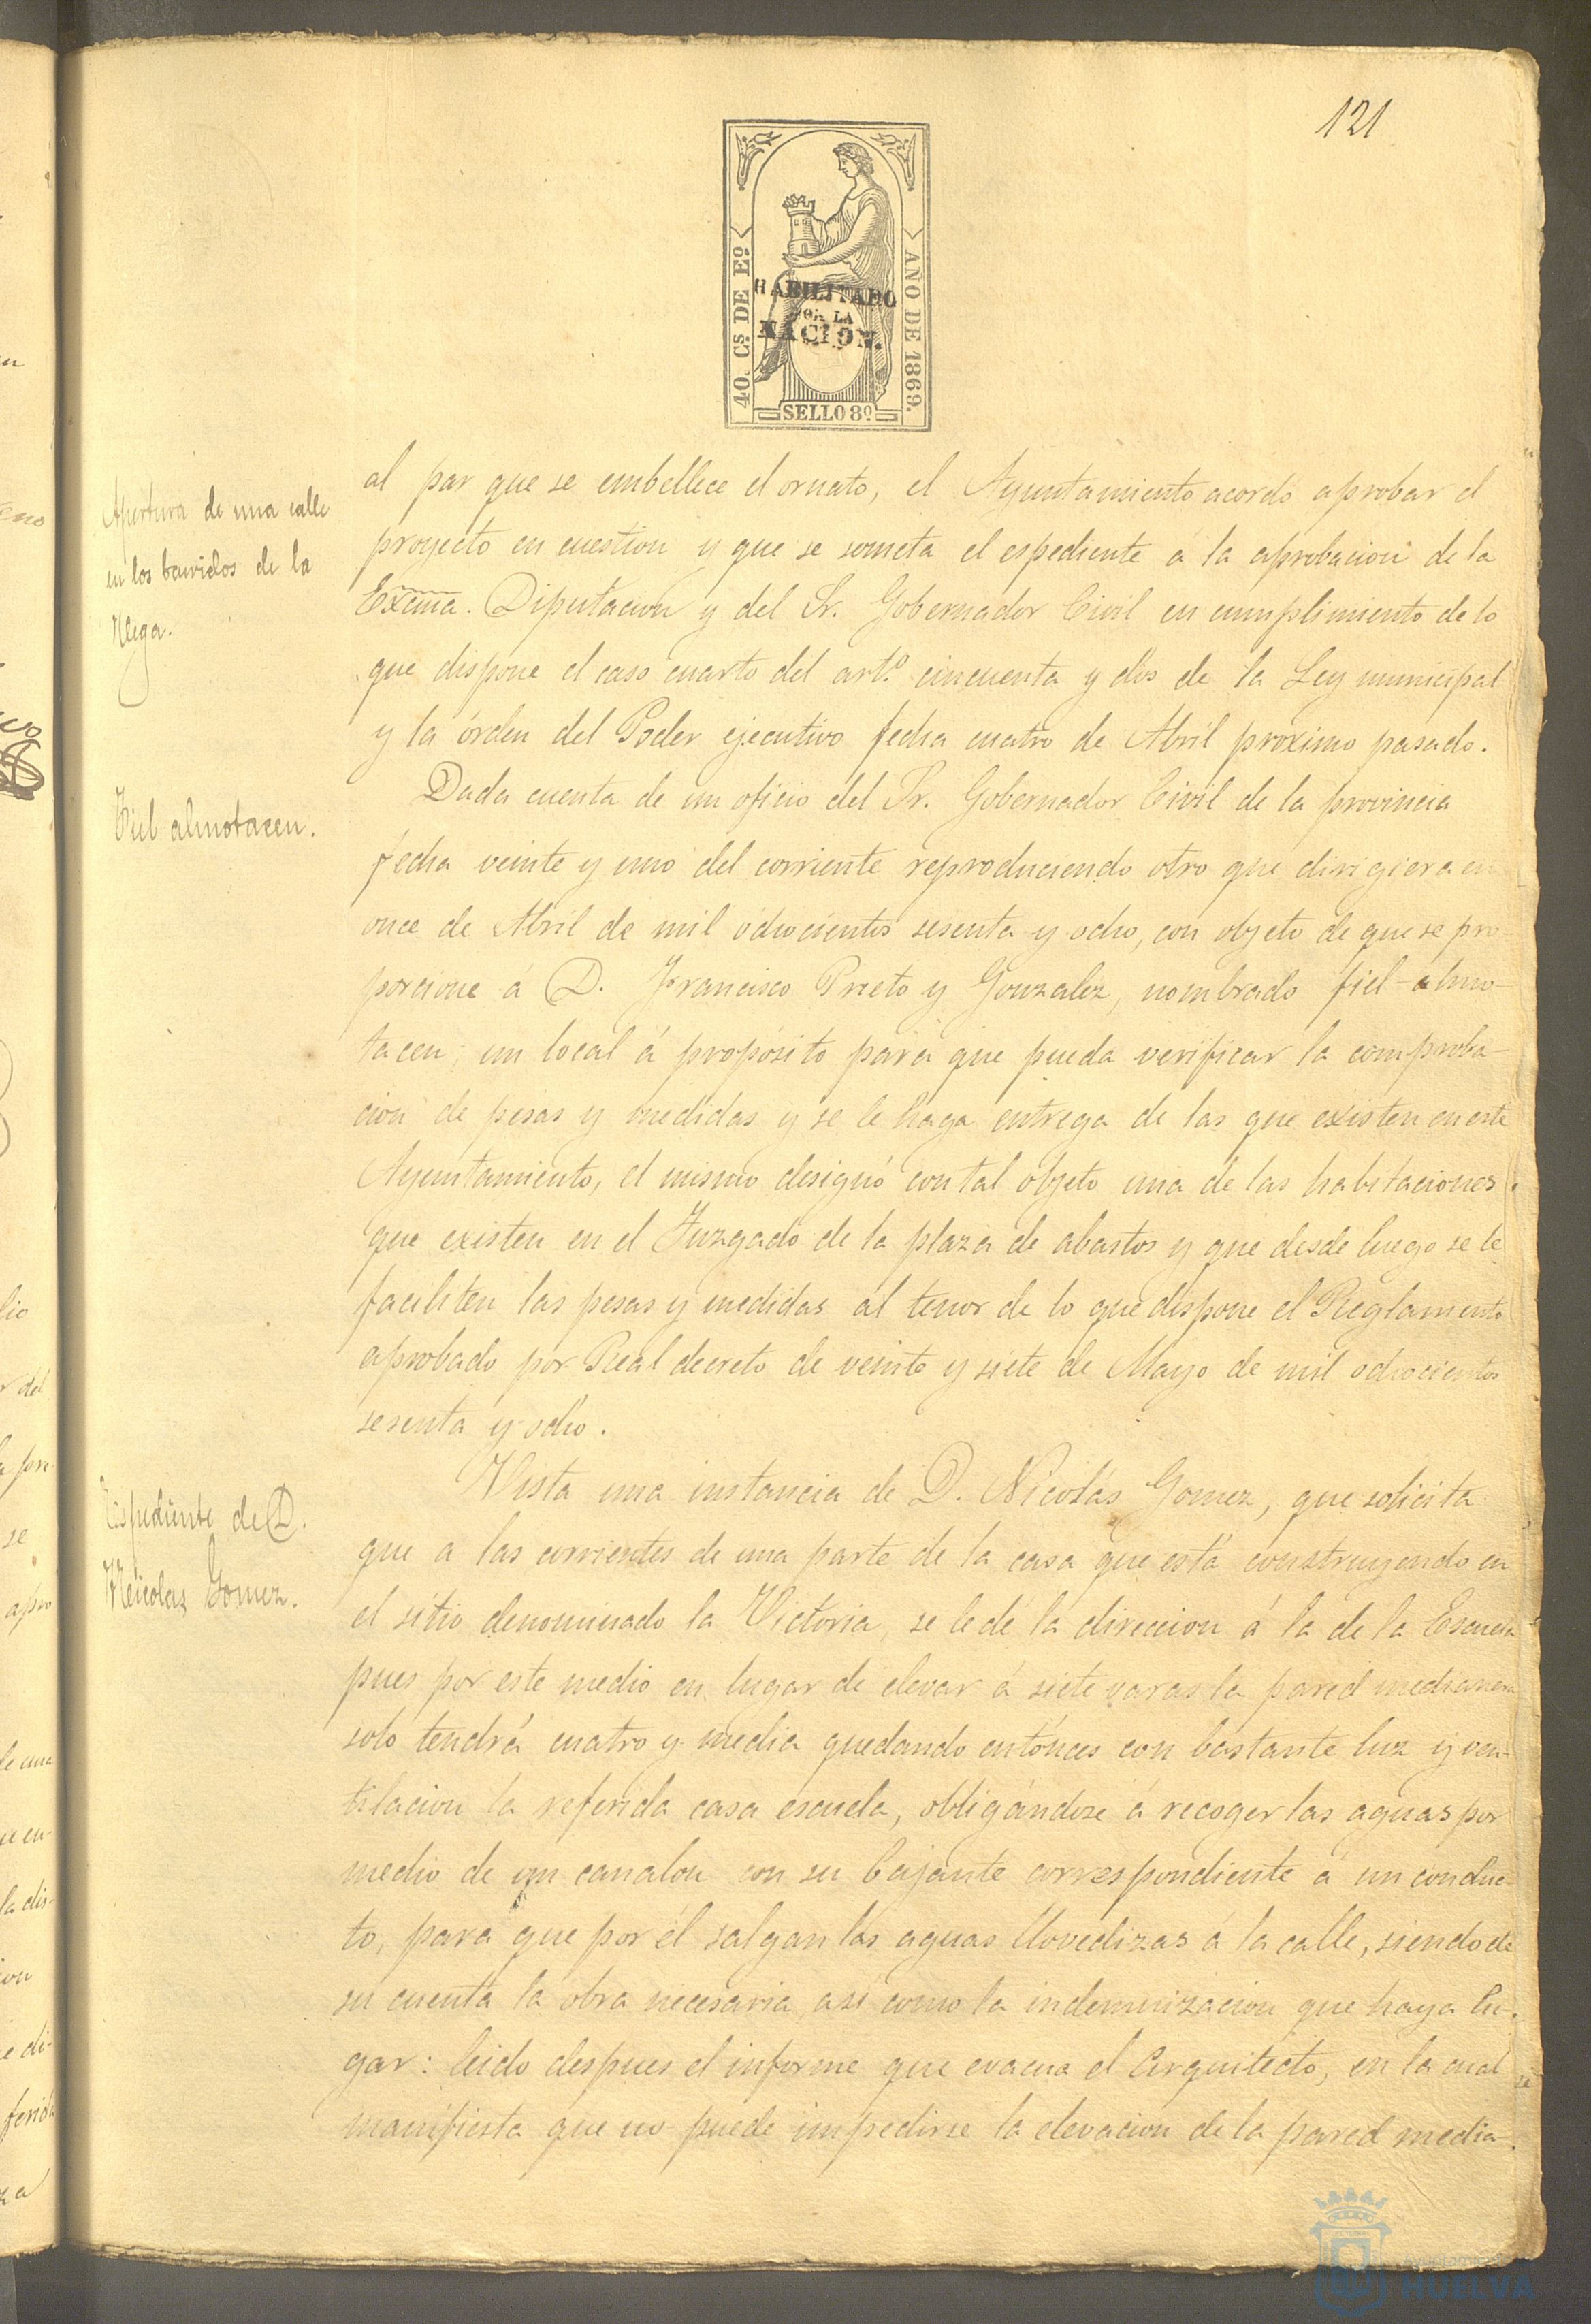 121
40. Cs. DE Eº
AÑO DE 1869.
HABILITADO
POR LA
NACION.
SELLO 8º
Apertura de una calle
en los barridos de la
Vega.
al par que se embellece el ornato, el Ayuntamiento acordó aprobar el
proyecto en cuestion y que se someta el espediente á la aprobacion de la
Excma. Diputacion y del Sr. Gobernador Civil en cumplimiento de lo
que dispone el caso cuarto del artº. cincuenta y dos de la Ley municipal
y la órden del Poder ejecutivo fecha cuatro de Abril proximo pasado.
Fiel almotacen.
Dada cuenta de un oficio del Sr. Gobernador Civil de la provincia
fecha veinte y uno del corriente reproduciendo otro que dirigiera en
once de Abril de mil ochocientos sesenta y ocho, con objeto de que se pro-
porcione á D. Francisco Prieto y Gonzalez, nombrado fiel-almo-
tacen, un local á propósito para que pueda verificar la comproba-
cion de pesas y medidas y se le haga entrega de las que existen en este
Ayuntamiento, el mismo designó con tal objeto una de las habitaciones
que existen en el Juzgado de la plaza de abastos y que desde luego se le
faciliten las pesas y medidas al tenor de lo que dispone el Reglamento
aprobado por Real decreto de veinte y siete de Mayo de mil ochocientos
sesenta y ocho.
Espediente de D.
Nicolas Gomez.
Vista una instancia de D. Nicolás Gomez, que solicita
que a las corrientes de una parte de la casa que está construyendo en
el sitio denominado la Victoria, se le dé la direccion á la de la Escuela
pues por este medio en lugar de elevar á siete varas la pared medianera
solo tendrá cuatro y media quedando entónces con bastante luz y ven-
tilacion la referida casa escuela, obligándose á recoger las aguas por
medio de un canalon con su bajante correspondiente á un conduc-
to, para que por él salgan las aguas llovedizas á la calle, siendo de
su cuenta la obra necesaria asi como la indemnizacion que haya lu-
gar: leido despues el informe que evacua el Arquitecto, en la cual
manifiesta que no puede impedirse la elevacion de la pared media-
ayuntamiento
HUELVA